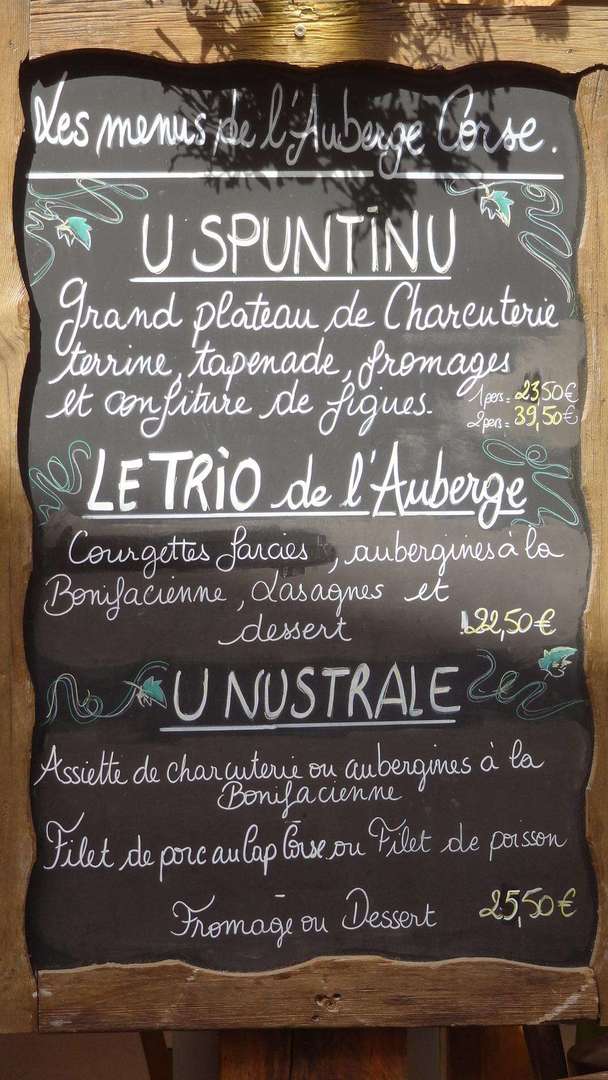 Les menus de l'Auberge Corse.
U SPUNTINU
Grand plateau de Charcuterie
terrine, tapenade, fromages
et confiture de figues.
1 pers = 23,50€
2 pers = 39,50€
LE TRIO de l'Auberge
Courgettes farcies, aubergines à la
Bonifacienne, Lasagnes et
dessert 22,50€
U NUSTRALE
Assiette de charcuterie ou aubergines à la
Bonifacienne
Filet de porc au Cap Corse ou Filet de poisson
Fromage ou Dessert 25,50€